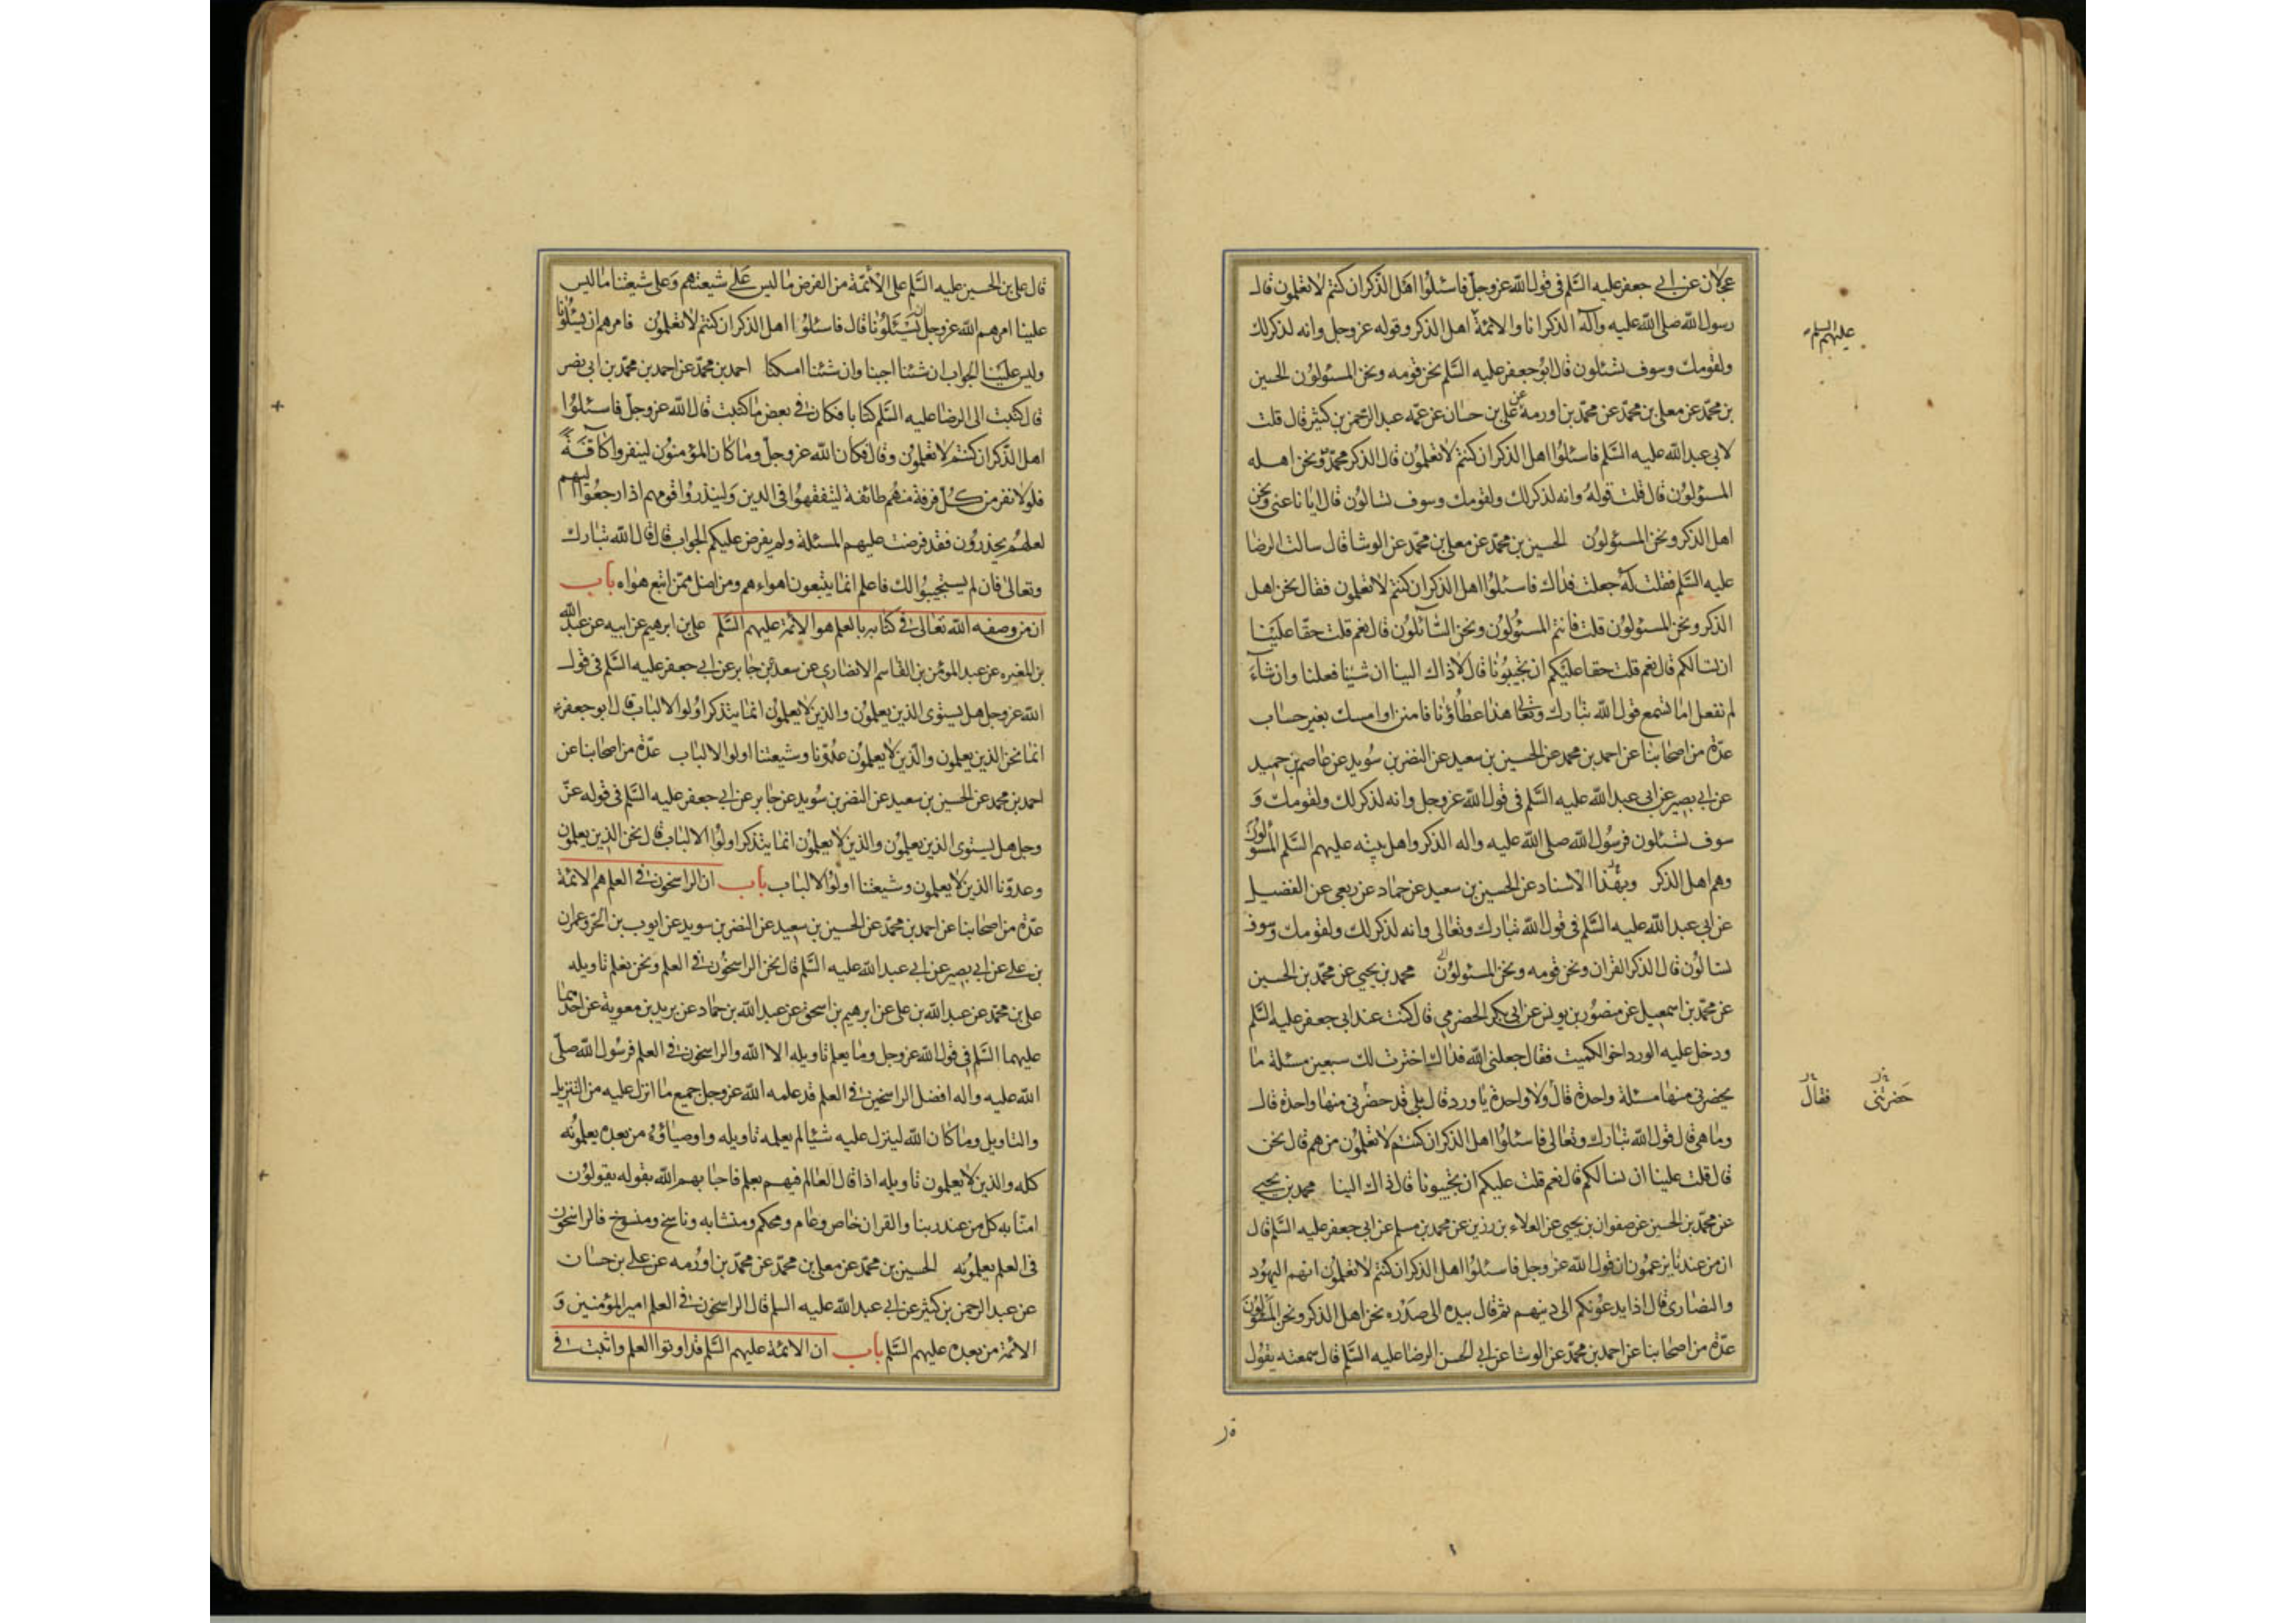 عجلان عن ابي جعفر عليه السَّلم فى قول الله عز وجل فاسئلوا اهل الذكر ان كنتم لا تعلمون قال
رسول الله صلى الله عليه وآله الذكر انا والائمة اهل الذكر وقوله عز وجل وانه لذكر لك
عليهم السلم
ولقومك وسوف تسئلون قال ابو جعفر عليه السَّلم نحن قومه ونحن المسئولون الحسين
بن محمّد عن معلى بن محمّد عن محمّد بن اورمه عن على بن حسان عن عمّه عبد الرحمن بن كثير قال قلت
لابى عبد الله عليه السَّلم فاسئلوا اهل الذكر ان كنتم لا تعلمون قال الذكر محمّد ونحن اهله
المسئولون قال قلت قوله وانه لذكر لك ولقومك وسوف تسالون قال ايانا عنى ونحن
اهل الذكر ونحن المسئولون الحسين بن محمّد عن معلى بن محمّد عن الوشا قال سالت الرضا
عليه السَّلم فقلت له جعلت فداك فاسئلوا اهل الذكر ان كنتم لا تعلمون فقال نحن اهل
الذكر ونحن المسئولون قلت فانتم المسئولون ونحن السّائلون قال نعم قلت حقّا علينا
ان نسالكم قال نعم قلت حقا عليكم ان تجيبونا قال لا ذاك الينا ان شئنا فعلنا وان شاء
لم نفعل اما تسمع قول الله تبارك وتعالى هذا عطاؤنا فامنن او امسك بغير حساب
عدّة من اصحابنا عن احمد بن محمد عن الحسين بن سعيد عن النضر بن سويد عن عاصم بن حميد
عن ابي بصير عن ابى عبد الله عليه السَّلم فى قول الله عز وجل وانه لذكر لك ولقومك و
سوف تسئلون فرسول الله صلى الله عليه واله الذكر واهل بيته عليهم السَّلم المسئولون
وهم اهل الذكر وبهذا الاسناد عن الحسين بن سعيد عن حماد عن ربعى عن الفضيل
عن ابى عبد الله عليه السَّلم فى قول الله تبارك وتعالى وانه لذكر لك ولقومك وسوف
تسالون قال الذكر القران ونحن قومه ونحن المسئولون محمد بن يحيى عن محمّد بن الحسين
عن محمّد بن اسمعيل عن منصور بن يونس عن ابى بكر الحضرمي قال كنت عند ابى جعفر عليه السَّلم
ودخل عليه الورد اخو الكميت فقال جعلنى الله فداك اخترت لك سبعين مسئلة ما
يحضرنى منها مسئلة واحدة قال ولا واحدة يا ورد قال بلى قد حضرنى منها واحدة قال
حضرتنى فقال
وما هى قال قول الله تبارك وتعالى فاسئلوا اهل الذكر ان كنتم لا تعلمون من هم قال نحن
قال قلت علينا ان نسالكم قال نعم قلت عليكم ان تجيبونا قال ذاك الينا محمد بن يحيى
عن محمّد بن الحسين عن صفوان بن يحيى عن العلاء بن رزين عن محمد بن مسلم عن ابى جعفر عليه السَّلم قال
ان من عندنا يزعمون ان قول الله عز وجل فاسئلوا اهل الذكر ان كنتم لا تعلمون انهم اليهود
والنصارى قال اذا يدعونكم الى دينهم ثم قال بيده الى صدره نحن اهل الذكر ونحن المسئولون
عدّة من اصحابنا عن احمد بن محمّد عن الوشا عن ابى الحسن الرضا عليه السَّلم قال سمعته يقول
قال على بن الحسين عليه السَّلم على الأئمّة من الفرض ما ليس على شيعتهم وعلى شيعتنا ما ليس
علينا امرهم الله عز وجل ان يسئلونا قال فاسئلوا اهل الذكر ان كنتم لا تعلمون فامرهم ان يسئلونا
وليس علينا الجواب ان شئنا اجبنا وان شئنا امسكنا احمد بن محمّد عن احمد بن محمّد بن ابى نصر
قال كتبت الى الرضا عليه السَّلم كتابا فكان فى بعض ما كتبت قال الله عز وجل فاسئلوا
اهل الذكر ان كنتم لا تعلمون وقال فكان الله عز وجل وما كان المؤمنون لينفروا كافة
فلولا نفر من كل فرقة منهم طائفة ليتفقهوا فى الدين ولينذروا قومهم اذا رجعوا اليهم
لعلهم يحذرون فقد فرضت عليهم المسئلة ولم يفرض عليكم الجواب قال قال الله تبارك
وتعالى فان لم يستجيبوا لك فاعلم انما يتبعون اهواءهم ومن اضل ممّن اتبع هواه باب
ان من وصفه الله تعالى فى كتابه بالعلم هو الائمة عليهم السَّلم على بن ابرهيم عن ابيه عن عبد الله
بن المغيره عن عبد المؤمن بن القاسم الانصاري عن سعد عن جابر عن ابي جعفر عليه السَّلم فى قول
الله عز وجل هل يستوى الذين يعلمون والذين لا يعلمون انما يتذكر اولوا الالباب قال ابو جعفر
انما نحن الذين يعلمون والّذين لا يعلمون عدوّنا وشيعتنا اولوا الالباب عدّة من اصحابنا عن
احمد بن محمد عن الحسين بن سعيد عن النضر بن سويد عن جابر عن ابي جعفر عليه السَّلم فى قوله عزّ
وجل هل يستوى الذين يعلمون والذين لا يعلمون انما يتذكر اولوا الالباب قال نحن الذين يعلمون
وعدوّنا الذين لا يعلمون وشيعتنا اولوا الالباب باب ان الراسخون فى العلم هم الائمة
عدّة من اصحابنا عن احمد بن محمّد عن الحسين بن سعيد عن النضر بن سويد عن ايوب بن الحرّ وعمران
بن على عن ابي بصير عن ابي عبد الله عليه السَّلم قال نحن الراسخون فى العلم ونحن نعلم تاويله
على بن محمّد عن عبد الله بن على عن ابرهيم بن اسحق عن عبد الله بن حماد عن بريد بن معوية عن احدهما
عليهما السَّلم فى قول الله عز وجل وما يعلم تاويله الا الله والراسخون فى العلم فرسول الله صلّى
الله عليه واله افضل الراسخين فى العلم قد علمه الله عز وجل جميع ما انزل عليه من التنزيل
والتاويل وما كان الله لينزل عليه شيئا لم يعلمه تاويله واوصياؤه من بعده يعلمونه
كله والذين لا يعلمون تاويله اذا قال العالم فيهم بعلم فاجابهم الله بقوله يقولون
امنّا به كل من عند ربنا والقران خاص وعام ومحكم ومتشابه وناسخ ومنسوخ فالراسخون
فى العلم يعلمونه الحسين بن محمّد عن معلى بن محمّد عن محمّد بن اورمه عن على بن حسان
عن عبد الرحمن بن كثير عن ابي عبد الله عليه السلم قال الراسخون فى العلم امير المؤمنين و
الائمة من بعده عليهم السَّلم باب ان الائمة عليهم السَّلم قد اوتوا العلم واثبت فى